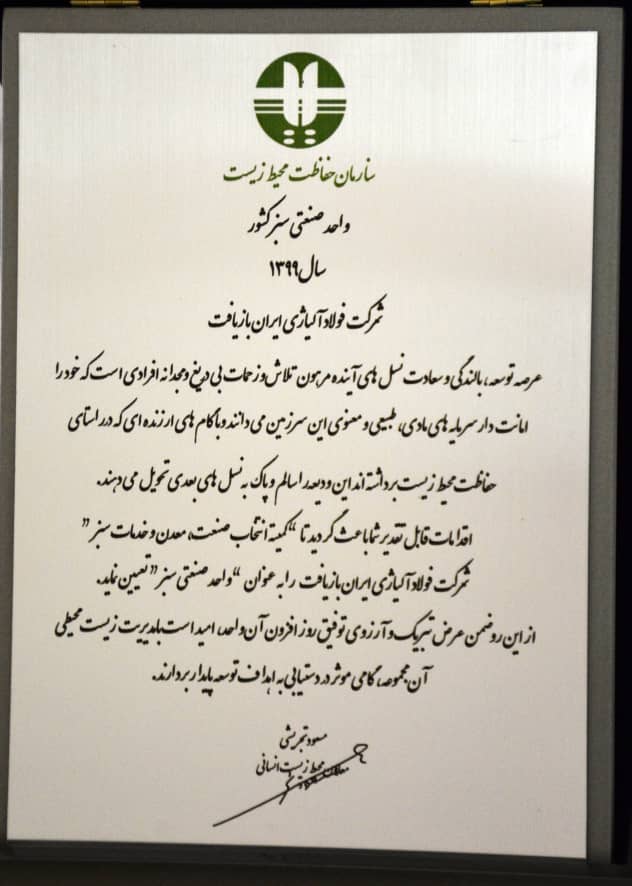 سازمان حفاظت محیط زیست
واحد صنعتی سبز کشور
سال ۱۳۹۹
شرکت فولاد آلیاژی ایران بازیافت
عرصه توسعه، بالندگی و سعادت نسل های آینده مرهون تلاش و زحمات بی دریغ و مجدانه افرادی است که خود را
امانت دار سرمایه های مادی، طبیعی و معنوی این سرزمین می دانند و با گام های ارزنده ای که در راستای
حفاظت محیط زیست برداشته اند این ودیعه را سالم و پاک به نسل های بعدی تحویل می دهند.
اقدامات قابل تقدیر شما باعث گردید تا "کمیته انتخاب صنعت، معدن و خدمات سبز"
شرکت فولاد آلیاژی ایران بازیافت را به عنوان "واحد صنعتی سبز" تعیین نماید.
از این رو ضمن عرض تبریک و آرزوی توفیق روز افزون آن واحد، امید است با مدیریت زیست محیطی
آن مجموعه، گامی موثر در دستیابی به اهداف توسعه پایدار بردارند.
مسعود تجریشی
محیط زیست انسانی